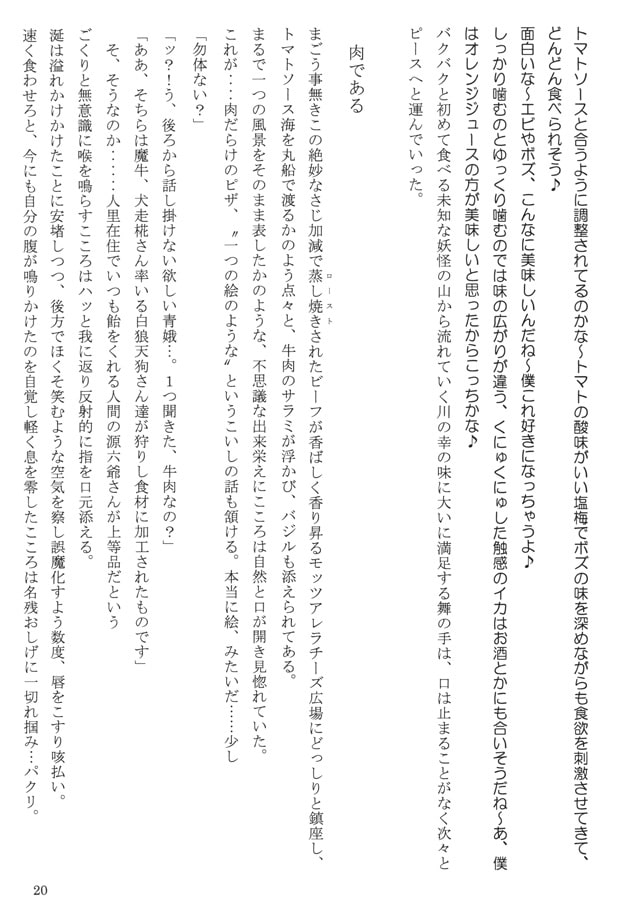 トマトソースと合うように調整されてるのかな～トマトの酸味がいい塩梅でボズの味を深めながらも食欲を刺激させてきて、
どんどん食べられそう♪
面白いな～エビやボズ、こんなに美味しいんだね～僕これ好きになっちゃうよ♪
しっかり噛むのとゆっくり噛むのでは味の広がりが違う、くにゅくにゅした触感のイカはお酒とかにも合いそうだね～あ、僕
はオレンジジュースの方が美味しいと思ったからこっちかな♪
バクバクと初めて食べる未知な妖怪の山から流れていく川の幸の味に大いに満足する舞の手は、口は止まることがなく次々と
ピースへと運んでいった。
肉である
まごう事無きこの絶妙なさじ加減で蒸し焼きされたビーフが香ばしく香り昇るモッツアレラチーズ広場にどっしりと鎮座し、
ロースト
トマトソース海を丸船で渡るかのよう点々と、牛肉のサラミが浮かび、バジルも添えられてある。
まるで一つの風景をそのまま表したかのような、不思議な出来栄えにこころは自然と口が開き見惚れていた。
これが・・・肉だらけのピザ、〝一つの絵のような〟というこいしの話も頷ける。本当に絵、みたいだ……少し
「勿体ない？」
「ッ？！う、後ろから話し掛けない欲しい青娥…。１つ聞きた、牛肉なの？」
「ああ、そちらは魔牛、犬走椛さん率いる白狼天狗さん達が狩りし食材に加工されたものです」
そ、そうなのか・・・・・人里在住でいつも飴をくれる人間の源六爺さんが上等品だという
ごくりと無意識に喉を鳴らすこころはハッと我に返り反射的に指を口元添える。
涎は溢れかけかけたことに安堵しつつ、後方でほくそ笑むような空気を察し誤魔化すよう数度、唇をこすり咳払い。
速く食わせろと、今にも自分の腹が鳴りかけたのを自覚し軽く息を零したこころは名残おしげに一切れ掴み…パクリ。
20